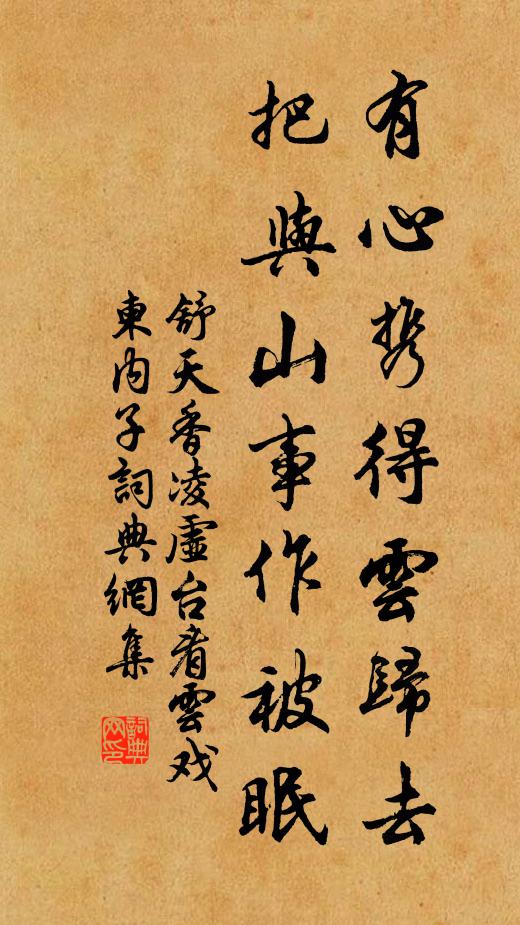 有心携得雲歸去
把與山事作被眠
舒天香凌虛台看雲戏
東内子詞典網集
詞典
网印